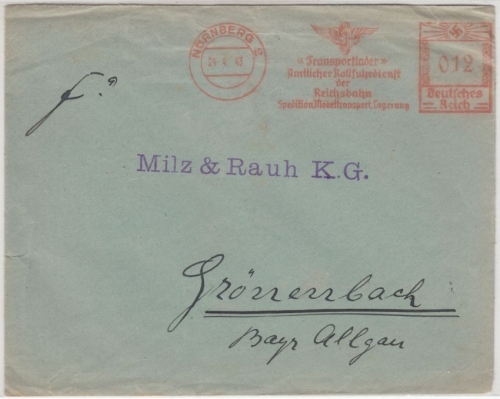 NÜRNBERG 2
24. 4. 43
«Transportlader»
Amtlicher Rollfuhrdienst
der
Reichsbahn
Spedition, Möbeltransport, Lagerung
012
Deutsches
Reich
Fa.
Milz & Rauh K.G.
Grönenbach
Bayr Allgau